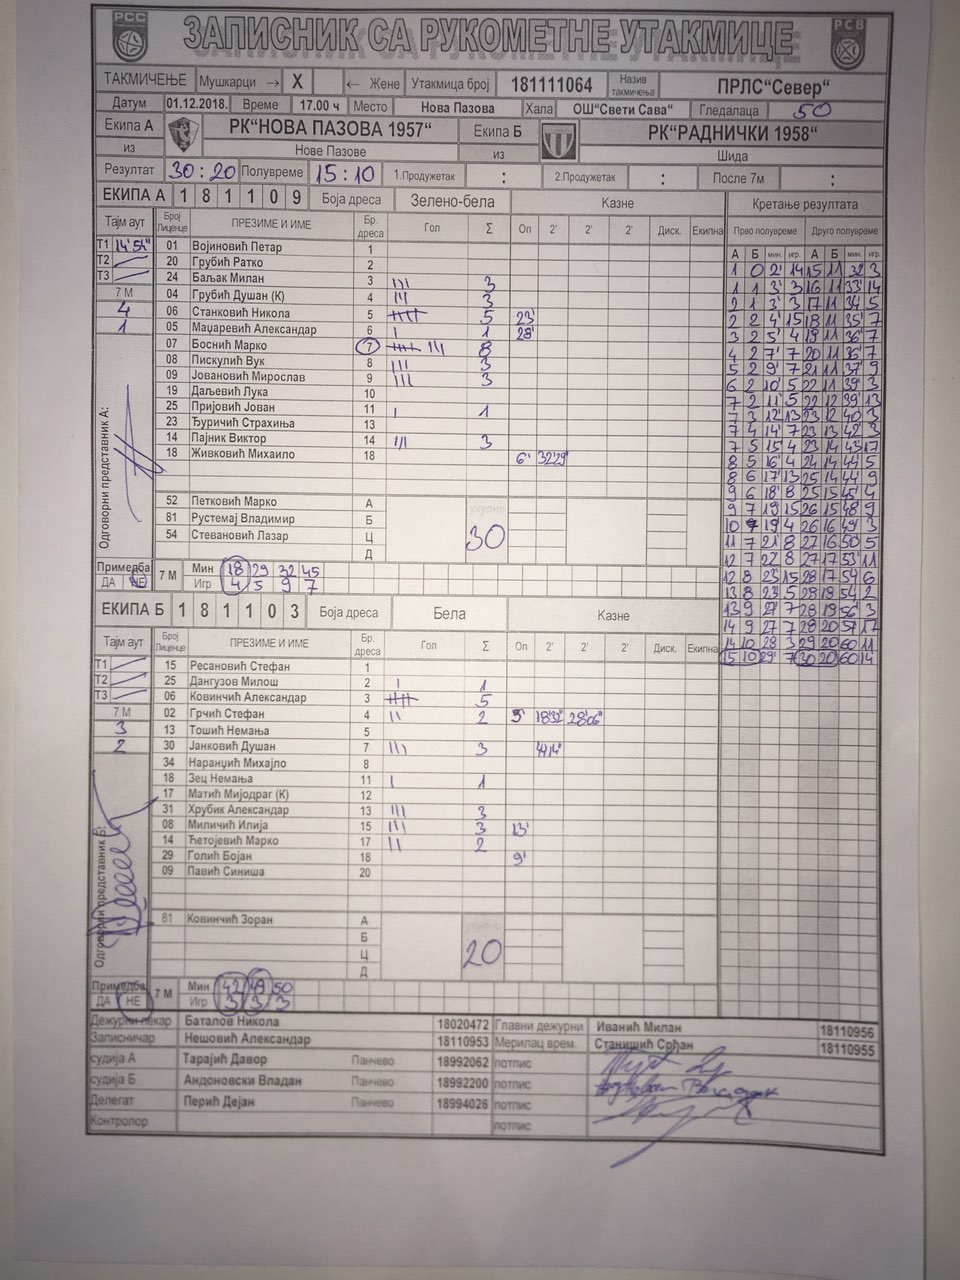 РСС ЗАПИСНИК СА РУКОМЕТНЕ УТАКМИЦЕ РСВ
ТАКМИЧЕЊЕ Мушкарци → X ← Жене Утакмица број 181111064 Назив такмичења ПРЛС“Север“
Датум 01.12.2018. Време 17.00 ч Место Нова Пазова Хала ОШ“Свети Сава“ Гледалаца 50
Екипа А РК“НОВА ПАЗОВА 1957“ Екипа Б РК“РАДНИЧКИ 1958“
из Нове Пазове из Шида
Резултат 30:20 Полувреме 15:10 1.Продужетак : 2.Продужетак : После 7м :
ЕКИПА А 1 8 1 1 0 9 Боја дреса Зелено-бела Казне Кретање резултата
Тајм аут Број Лиценце ПРЕЗИМЕ И ИМЕ Бр. дреса Гол Σ Оп 2' 2' 2' Диск. Екипна Прво полувреме Друго полувреме
А Б мин. игр. А Б мин. игр.
Т1 14'54"
Т2
Т3
7 М
4
1
Одговорни представник А:
01 Војиновић Петар 1
20 Грубић Ратко 2
24 Баљак Милан 3 III 3
04 Грубић Душан (К) 4 III 3
06 Станковић Никола 5 5 23'
05 Мацаревић Александар 6 I 1 28'
07 Боснић Марко 7 III 8
08 Пискулић Вук 8 III 3
09 Јовановић Мирослав 9 III 3
19 Даљевић Лука 10
25 Пријовић Јован 11 I 1
23 Ђуричић Страхиња 13
14 Пајник Виктор 14 III 3
18 Живковић Михаило 18 6' 32'29"
52 Петковић Марко А
81 Рустемај Владимир Б
54 Стевановић Лазар Ц
Д
укупно
30
1 0 2' 14 15 11 32' 3
1 1 3' 3 16 11 33' 14
2 1 3' 3 17 11 34' 5
2 2 4' 15 18 11 35' 7
3 2 5' 4 19 11 36' 7
4 2 7' 7 20 11 36' 7
5 2 9' 7 21 11 37' 9
6 2 10' 5 22 11 39' 3
7 2 11' 5 22 12 39' 13
7 3 12' 13 23 12 40' 3
7 4 14' 7 23 13 42' 3
7 5 15' 4 23 14 43' 17
8 5 16' 4 24 14 44' 5
8 6 17' 13 25 14 44' 9
9 6 18' 8 25 15 45' 4
9 7 19 15 26 15 48' 9
10 7 19 4 26 16 49' 3
11 7 21' 8 27 16 50' 5
12 7 22' 8 27 17 53' 11
12 8 23' 15 28 17 54' 6
13 8 23' 5 28 18 54' 2
13 9 27' 7 28 19 56' 3
14 9 27 7 28 20 57' 17
14 10 28 3 29 20 60 11
15 10 29' 7 30 20 60 14
Примедба ДА НЕ 7 М Мин 18 29 32 45
Игр 4 5 9 7
ЕКИПА Б 1 8 1 1 0 3 Боја дреса Бела Казне
Тајм аут Број Лиценце ПРЕЗИМЕ И ИМЕ Бр. дреса Гол Σ Оп 2' 2' 2' Диск. Екипна
Т1
Т2
Т3
7 М
3
2
Одговорни представник Б:
15 Ресановић Стефан 1
25 Дангузов Милош 2 I 1
06 Ковинчић Александар 3 5
02 Грчић Стефан 4 II 2 5' 18'32" 28'06"
13 Тошић Немања 5
30 Јанковић Душан 7 III 3
34 Наранџић Михајло 8
18 Зец Немања 11 I 1
17 Матић Мијодраг (К) 12
31 Хрубик Александар 13 III 3
08 Миличић Илија 15 III 3 13'
14 Ћетојевић Марко 17 II 2
29 Голић Бојан 18 9'
09 Павић Синиша 20
81 Ковинчић Зоран А
Б
Ц
Д
укупно
20
Примедба ДА НЕ 7 М Мин 42 49 50
Игр 3 3 3
Дежурни лекар Баталов Никола 18020472 Главни дежурни Иванић Милан 18110956
Записничар Нешовић Александар 18110953 Мерилац врем. Станишић Срђан 18110955
судија А Тарајић Давор Панчево 18992062 потпис
судија Б Андоновски Владан Панчево 18992200 потпис
Делегат Перић Дејан Панчево 18994026 потпис
Контролор потпис